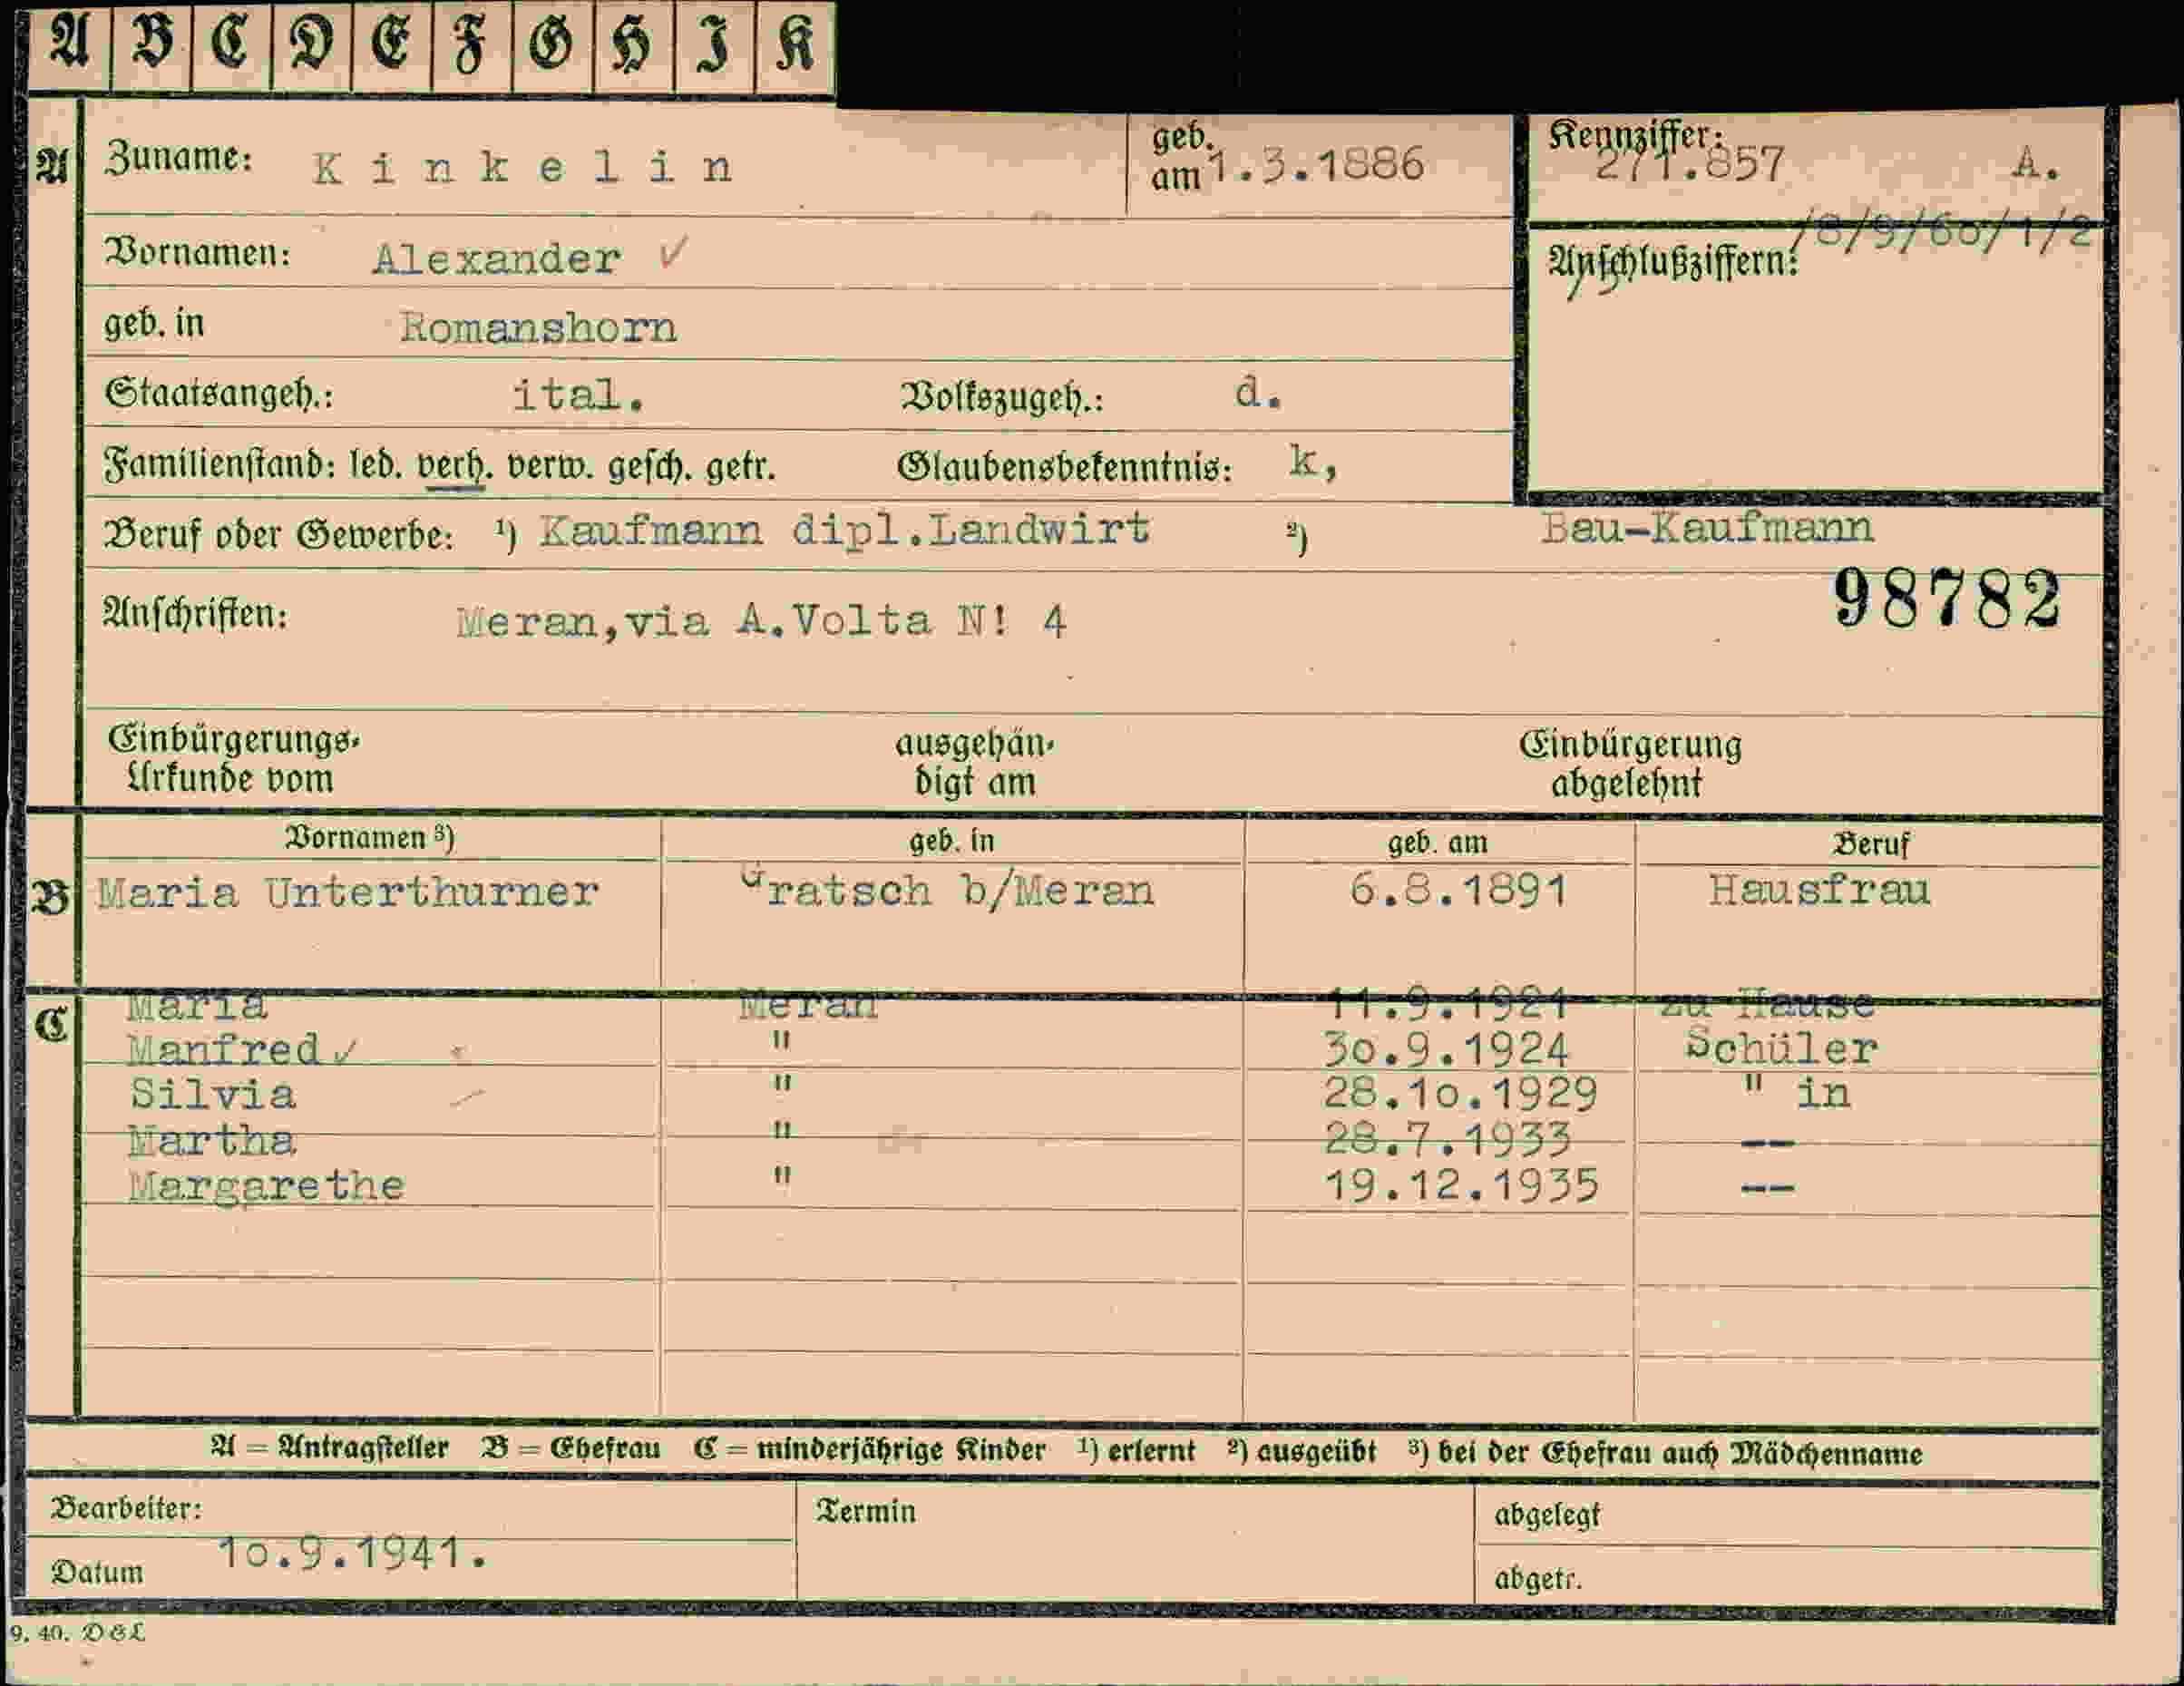 A B C D E F G H I K
A Zuname: Kinkelin geb. am 1.3.1886 Kennziffer: 271.857 A.
Vornamen: Alexander ✓ Anschlußziffern: /8/9/60/1/2
geb. in Romanshorn
Staatsangeh.: ital. Volkszugeh.: d.
Familienstand: led. verh. verw. gesch. getr. Glaubensbekenntnis: k,
Beruf oder Gewerbe: ¹) Kaufmann dipl.Landwirt ²) Bau-Kaufmann
98782
Anschriften: Meran,via A.Volta N! 4
Einbürgerungs- ausgehän- Einbürgerung
Urkunde vom digt am abgelehnt
Vornamen ³) geb. in geb. am Beruf
B Maria Unterthurner Gratsch b/Meran 6.8.1891 Hausfrau
C Maria Meran 11.9.1921 zu Hause
Manfred ✓ " 30.9.1924 Schüler
Silvia " 28.10.1929 " in
Martha " 28.7.1933 --
Margarethe " 19.12.1935 --
A = Antragsteller B = Ehefrau C = minderjährige Kinder ¹) erlernt ²) ausgeübt ³) bei der Ehefrau auch Mädchenname
Bearbeiter: Termin abgelegt
Datum 10.9.1941. abgetr.
9. 40. DGL